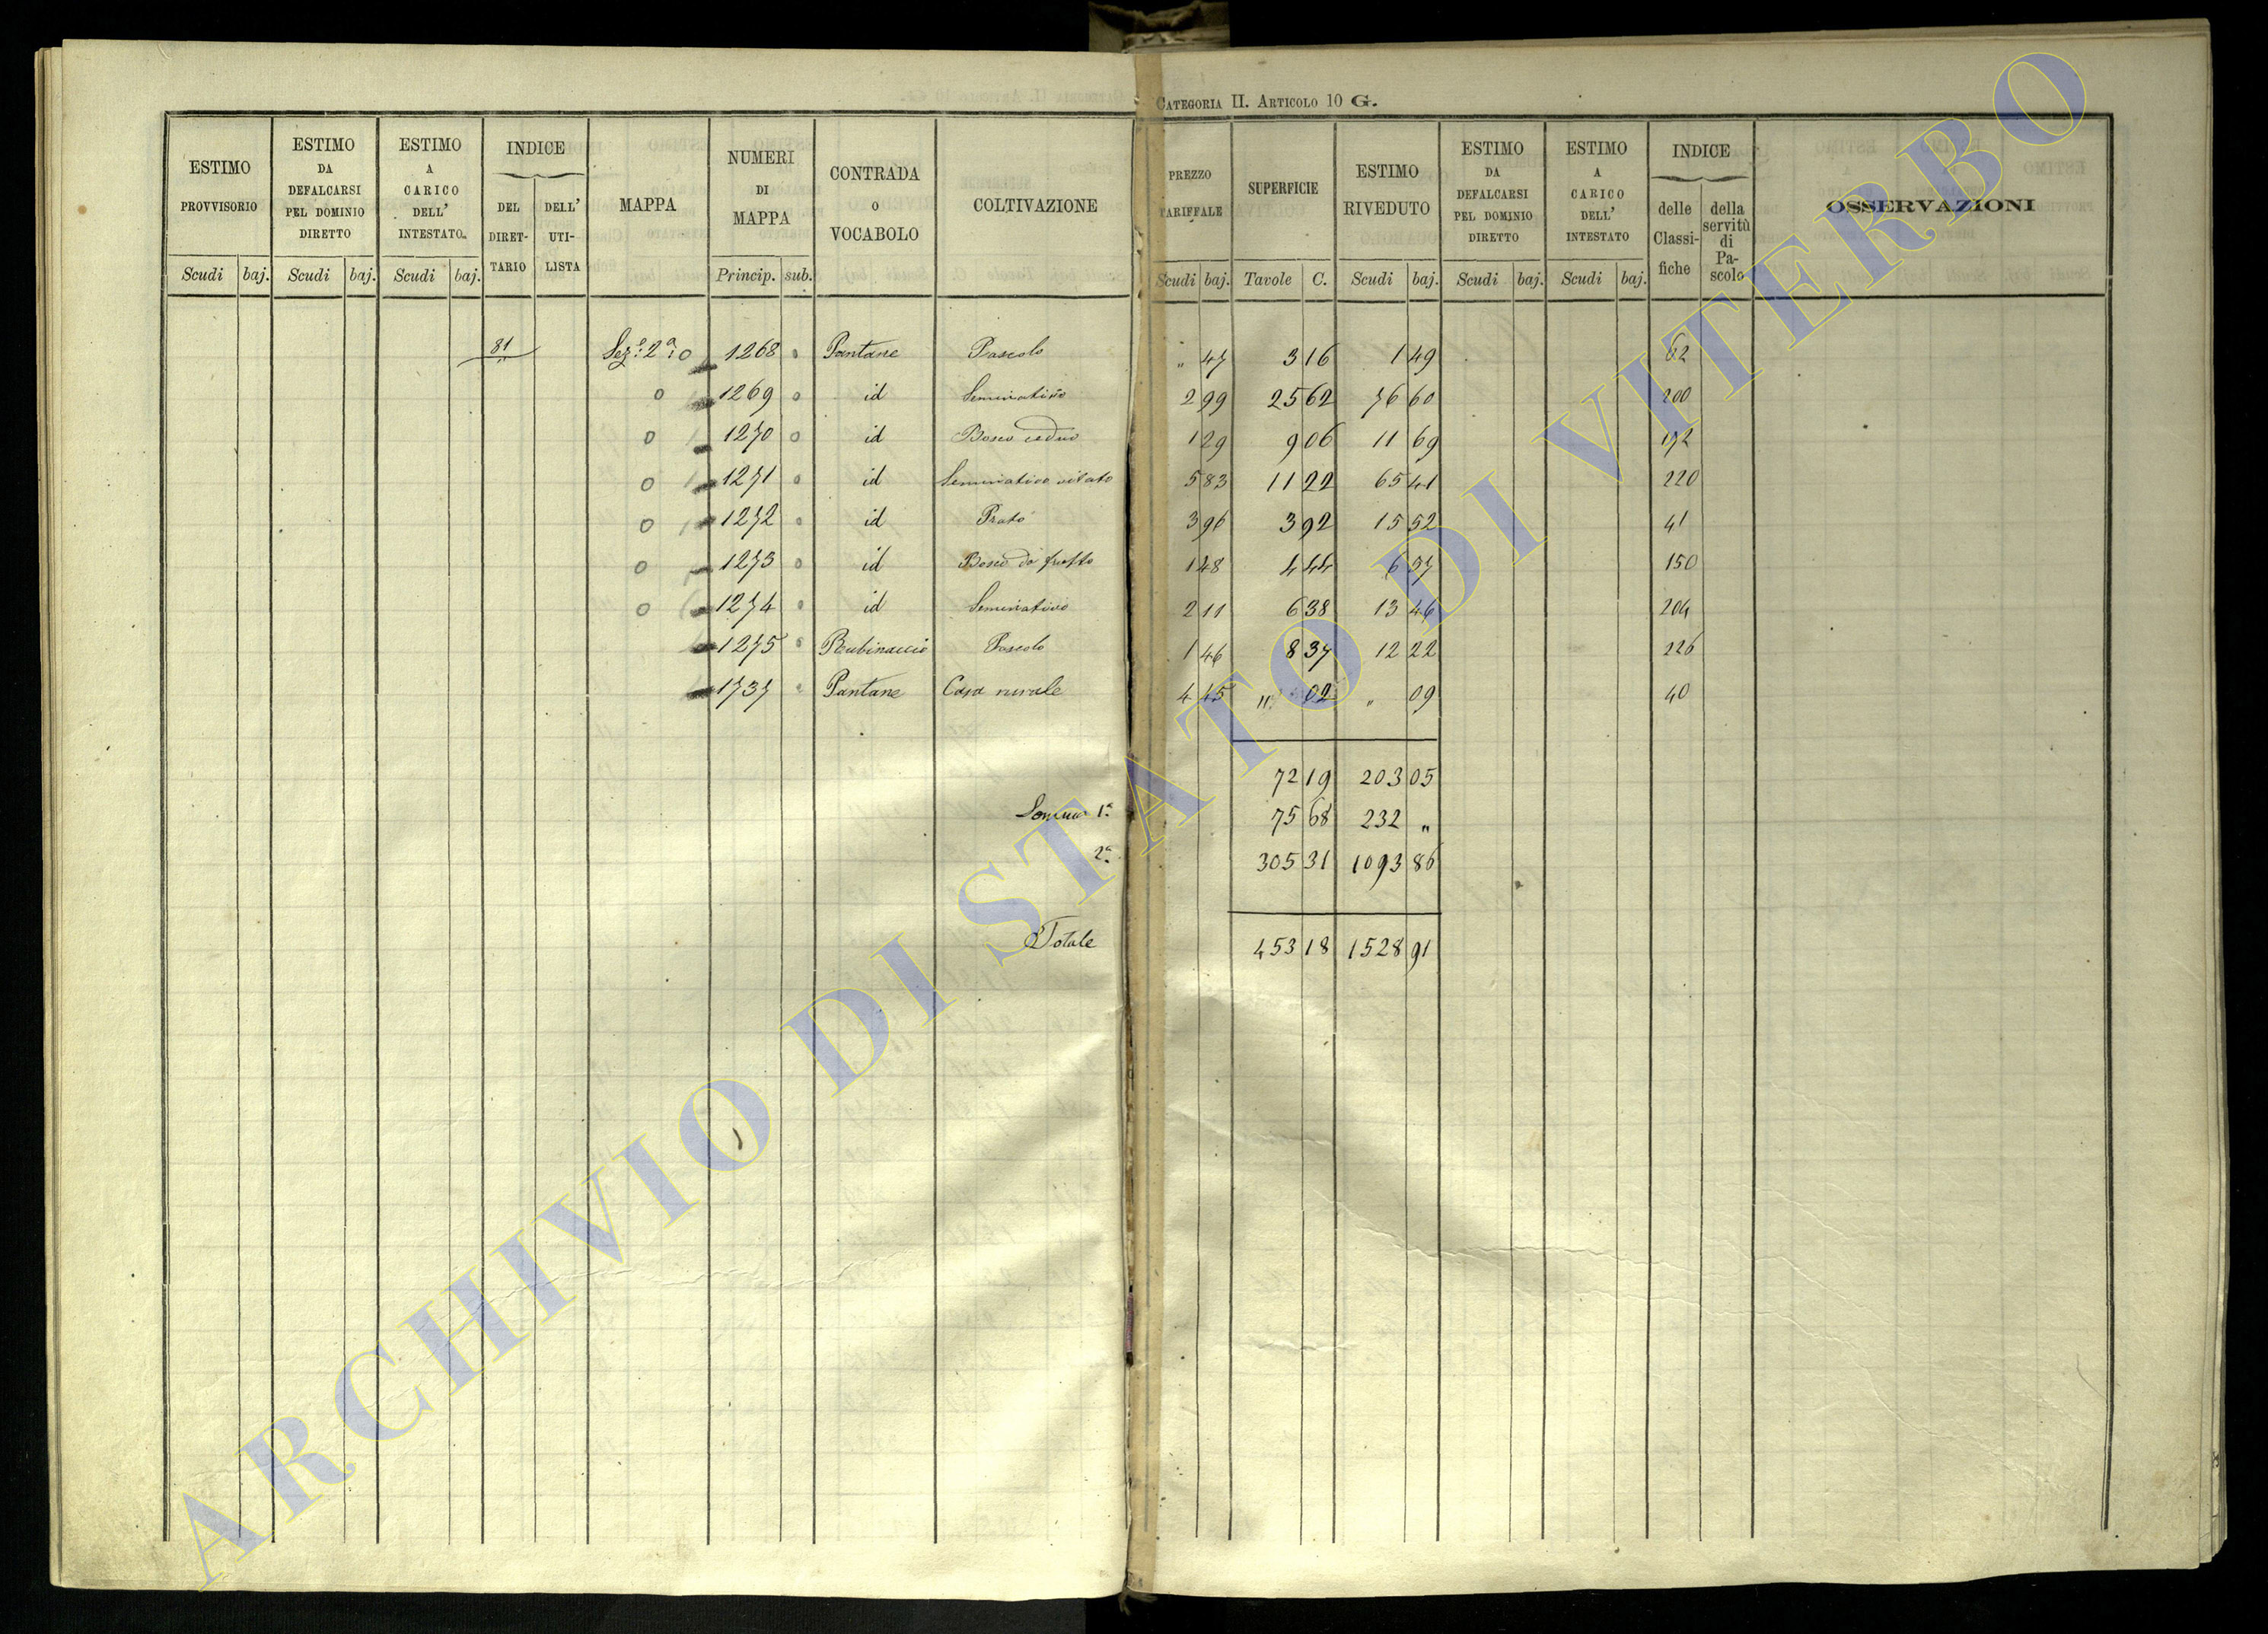 CATEGORIA II. ARTICOLO 10 G.
ESTIMO PROVVISORIO Scudi baj.
ESTIMO DA DEFALCARSI PEL DOMINIO DIRETTO Scudi baj.
ESTIMO A CARICO DELL' INTESTATO Scudi baj.
INDICE DEL DIRET-TARIO DELL' UTI-LISTA
MAPPA
NUMERI DI MAPPA Princip. sub.
CONTRADA O VOCABOLO
COLTIVAZIONE
PREZZO TARIFFALE Scudi baj.
SUPERFICIE Tavole C.
ESTIMO RIVEDUTO Scudi baj.
ESTIMO DA DEFALCARSI PEL DOMINIO DIRETTO Scudi baj.
ESTIMO A CARICO DELL' INTESTATO Scudi baj.
INDICE delle Classi-fiche della servitù di Pa-scolo
OSSERVAZIONI
81 Sez.e 2a 1268 Pantane Pascolo " 47 3 16 1 49 62
1269 id Seminativo 2 99 25 62 76 60 200
1270 id Bosco ceduo 1 29 9 06 11 69 192
1271 id Seminativo vitato 5 83 11 22 65 41 220
1272 id Prato 3 96 3 92 15 52 41
1273 id Bosco da frutto 1 48 4 44 6 57 150
1274 id Seminativo 2 11 6 38 13 46 204
1275 Rubinaccio Pascolo 1 46 8 37 12 22 226
1737 Pantane Casa rurale 4 45 " 02 " 09 40
72 19 203 05
Somma 1a 75 68 232 "
2a 305 31 1093 86
Totale 453 18 1528 91
ARCHIVIO DI STATO DI VITERBO